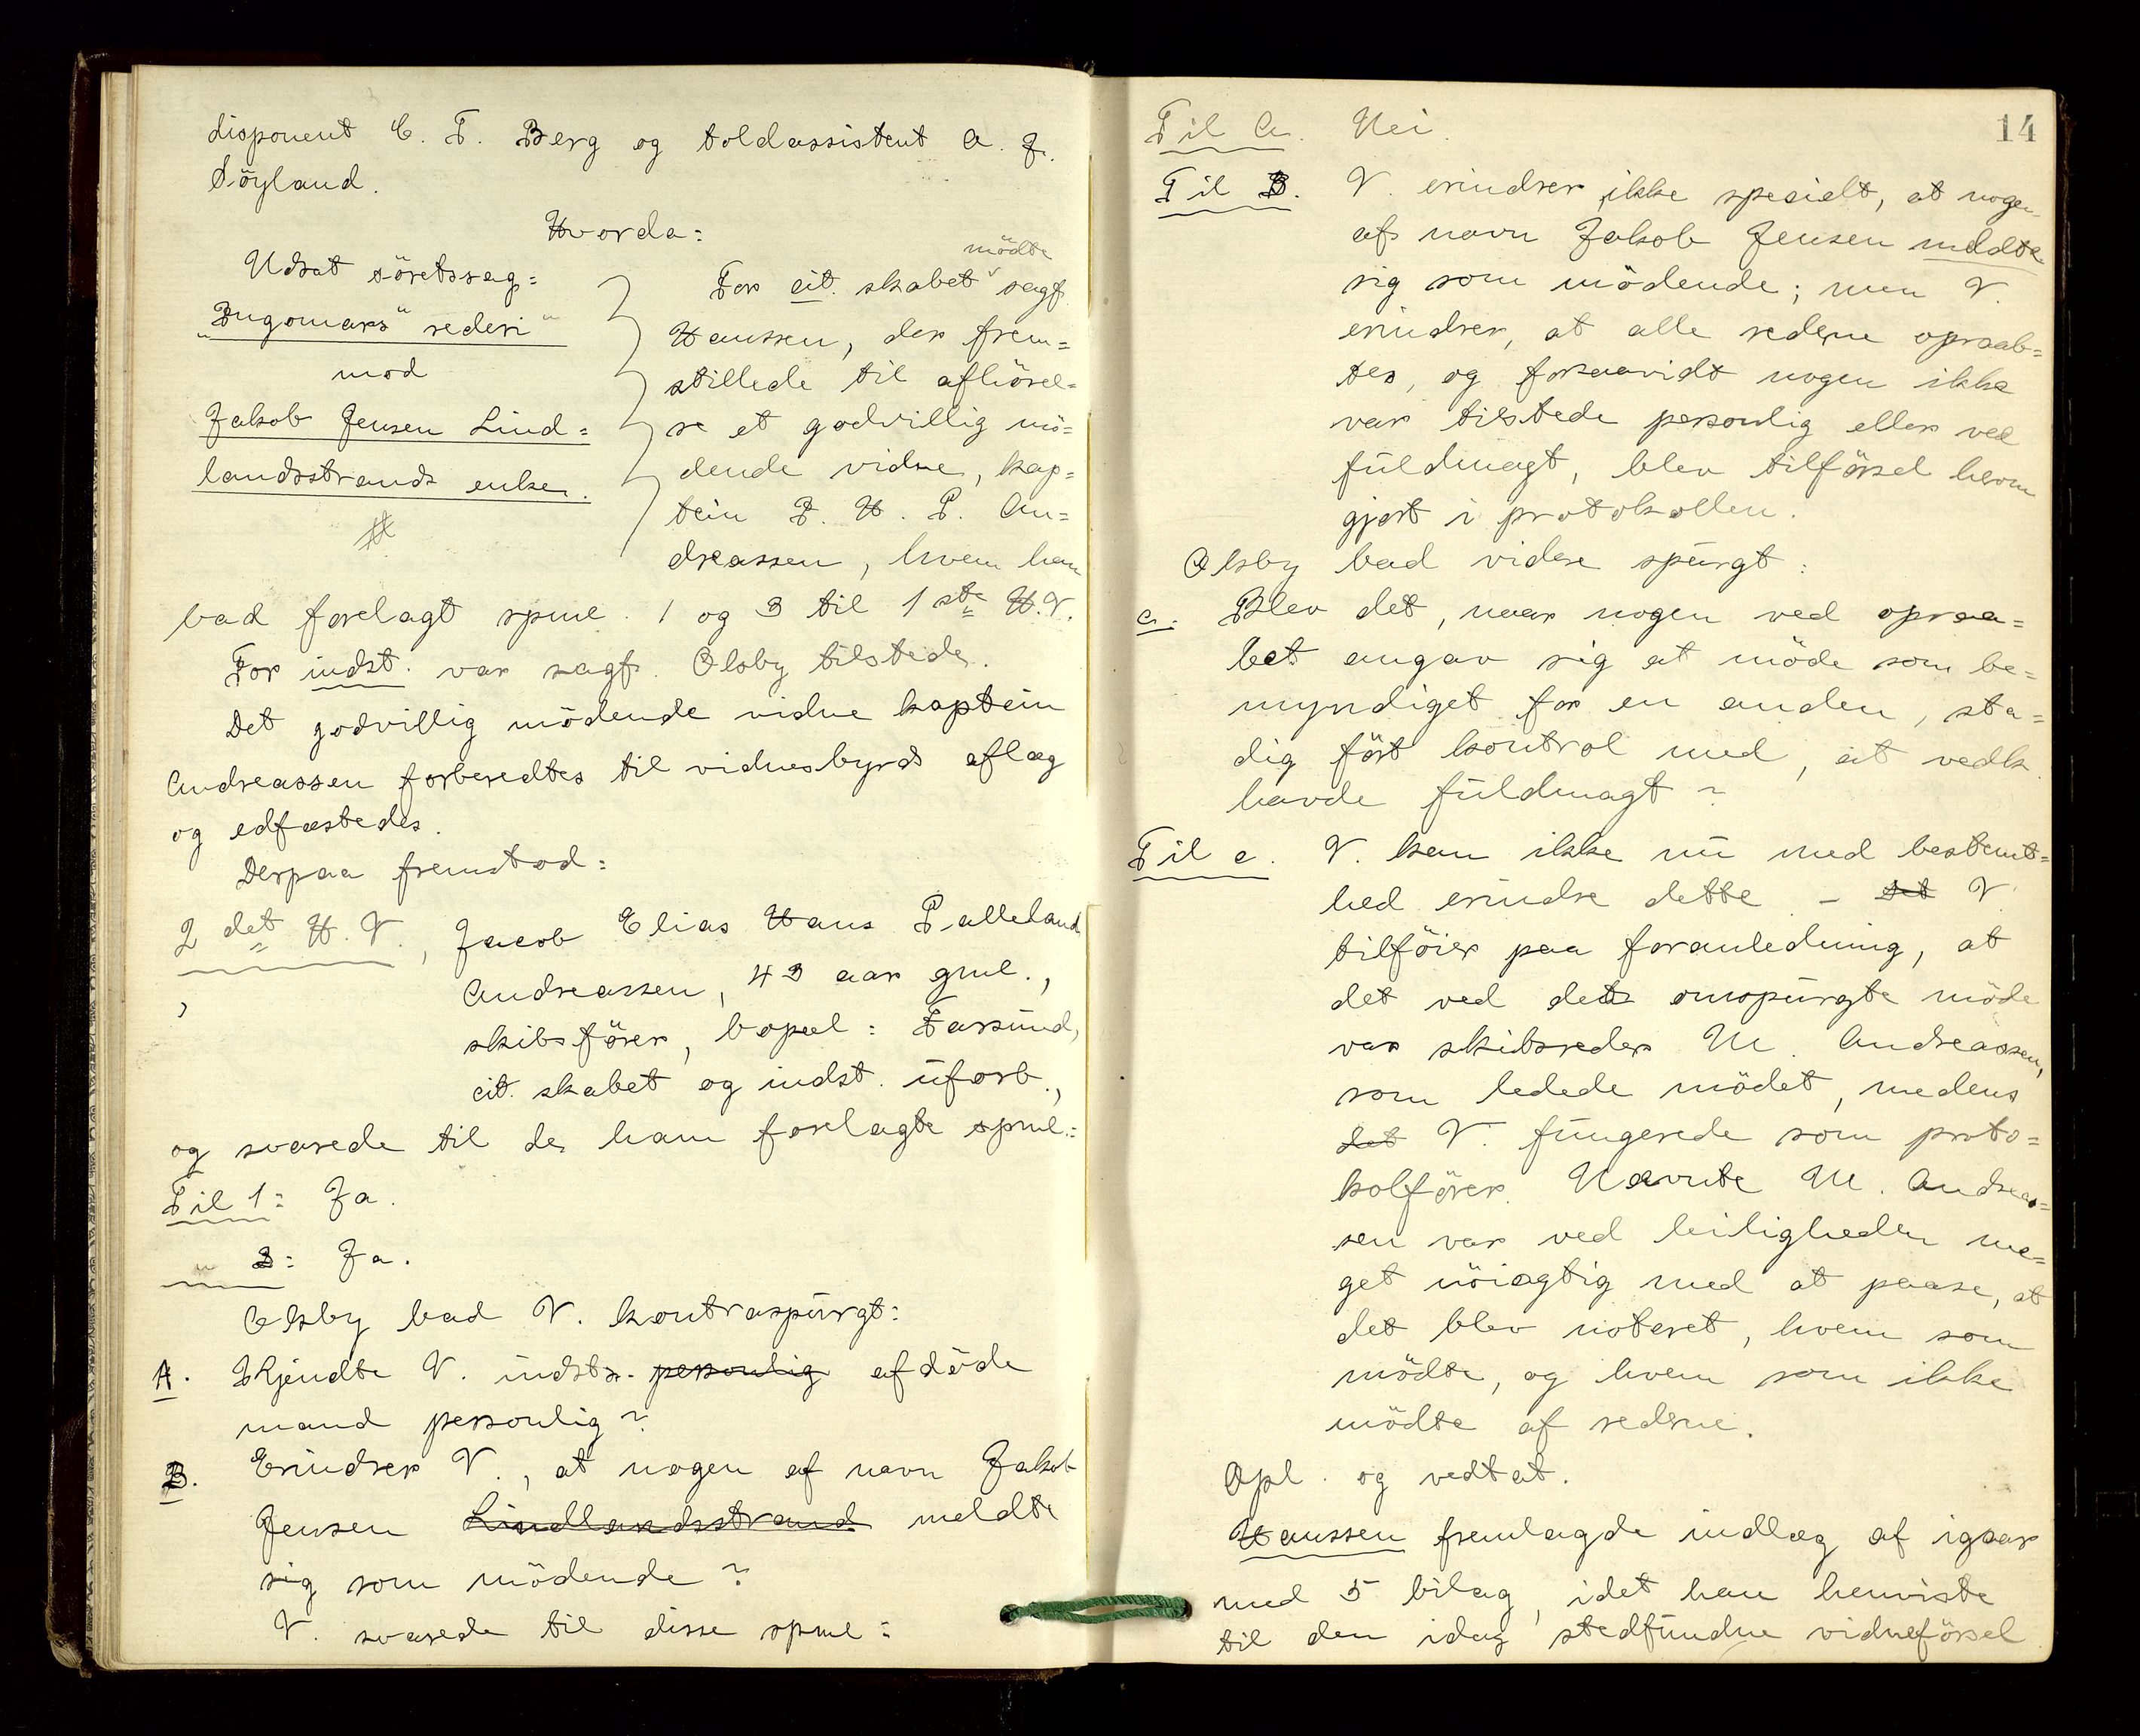 disponent C. F. Berg og toldassistent A. J.
Söyland.
Hvorda:
Udsat söretssag:
"Ingomars" rederi"
mod
Jakob Jensen Lind=
landsstrands enke.
#
For cit. skabet mödte sagf.
Hanssen, der frem=
stillede til afhörel=
se et godvillig mö=
dende vidne, kap=
tein J. H. P. An=
dreassen, hvem han
bad forelagt spml. 1 og 3 til 1ste H.V.
For indst. var sagf. Olsby tilstede.
Det godvillig mödende vidne kaptein
Andreassen forberedtes til vidnesbyrds aflæg
og edfæstedes.
Derpaa fremstod:
2det H. V., Jacob Elias Hans Palleland
Andreassen, 43 aar gml.,
skibsförer, bopæl: Farsund,
cit. skabet og indst. uforb.,
og svarede til de ham forelagte spml.:
Til 1: Ja.
" 3: Ja.
Olsby bad V. kontraspurgt:
A. Kjendte V. indsts. personlig afdöde
mand personlig?
B. Erindrer V., at nogen af navn Jakob
Jensen Lindlandsstrand meldte
sig som mödende?
V. svarede til disse spml:
14
Til A. Nei.
Til B. V. erindrer ikke specielt, at nogen
af navn Jakob Jensen meldte
sig som mödende; men V.
erindrer, at alle rederne opraab=
tes, og forsaavidt nogen ikke
var tilstede personlig eller ved
fuldmagt, blev tilförsel herom
gjort i protokollen.
Olsby bad videre spurgt:
c. Blev det, naar nogen ved opraa=
bet angav sig at möde som be=
myndiget for en anden, sta=
dig fört kontrol med, at vedk.
havde fuldmagt?
Til c. V. kan ikke nu med bestemt=
hed erindre dette. - det V.
tilföier paa foranledning, at
det ved det omspurgte möde
var skibsreder M. Andreassen,
som ledede mödet, medens
det V. fungerede som proto=
kolförer. Nævnte M. Andreas=
sen var ved leiligheden me=
get nöiagtig med at paase, at
det blev noteret, hvem som
mödte, og hvem som ikke
mödte af rederne.
Opl. og vedtat.
Hanssen fremlagde indlæg af igaar
med 5 bilag, idet han henviste
til den idag stedfundne vidneförsel